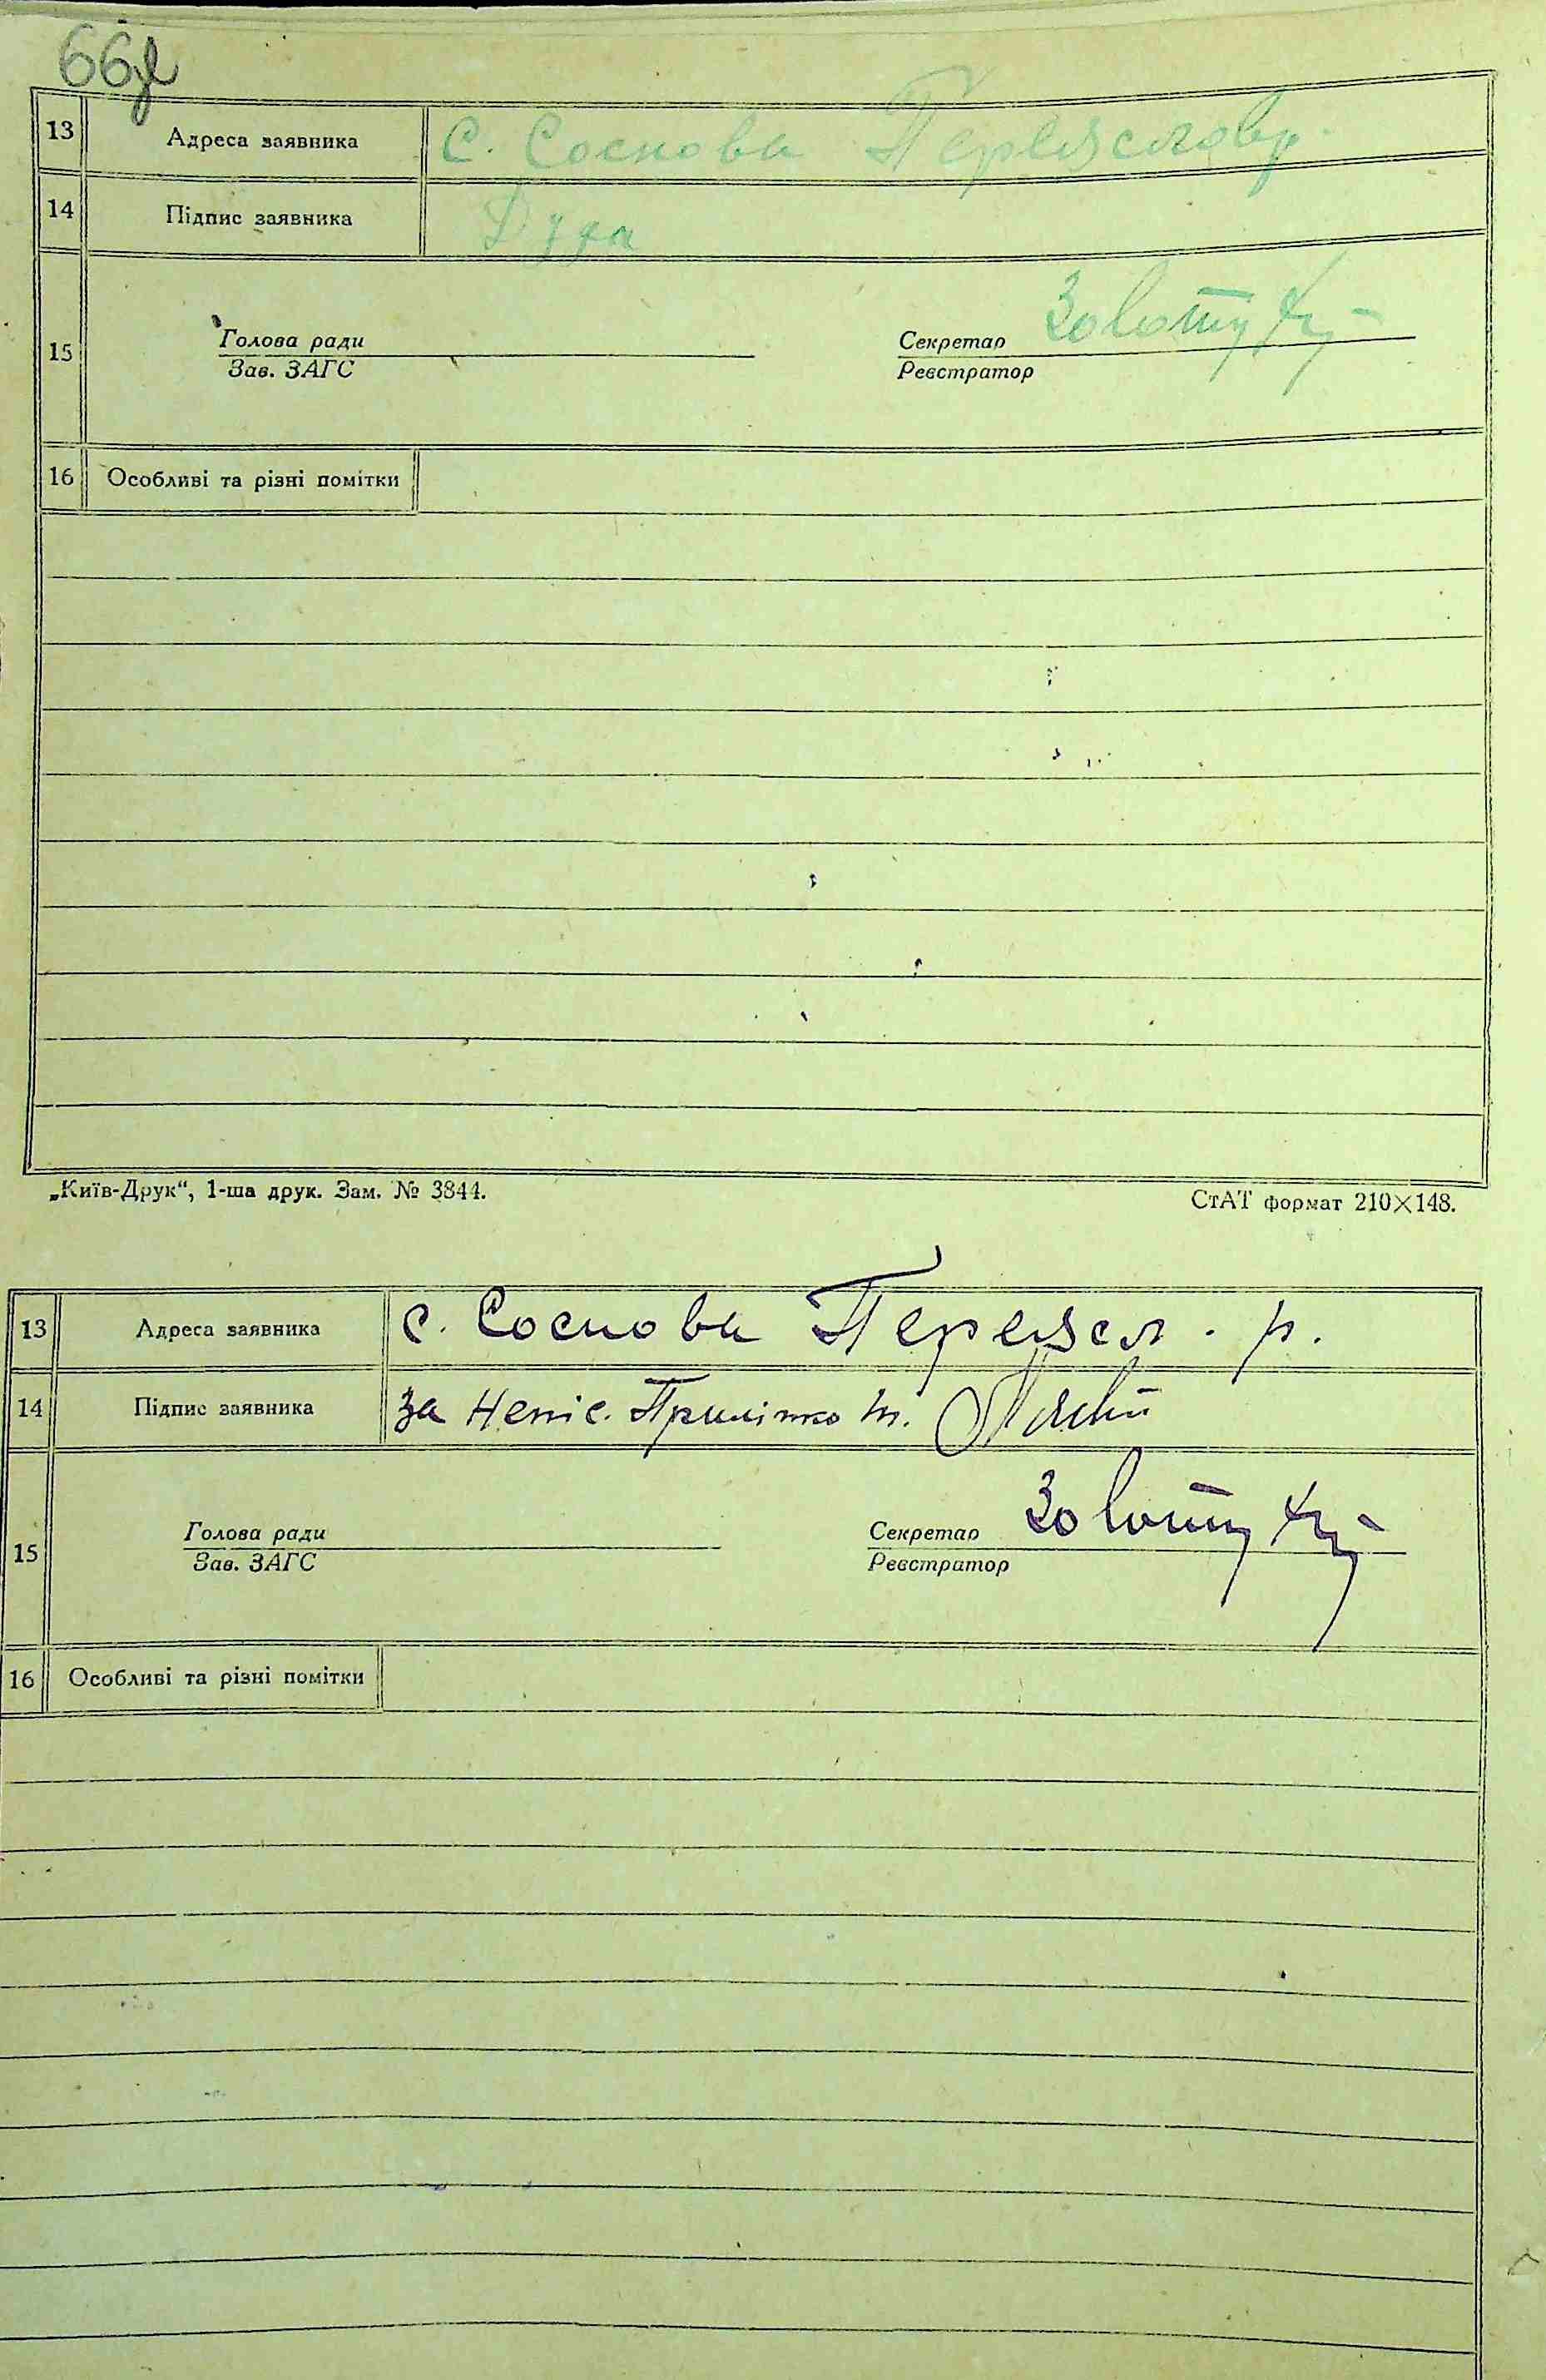 66
13 Адреса заявника С. Соснова Переяслов р.
14 Підпис заявника Дуда
15 Голова ради Секретар Золоту
Зав. ЗАГС Реєстратор
16 Особливі та різні помітки
„Київ-Друк“, 1-ша друк. Зам. № 3844. СтАТ формат 210×148.
13 Адреса заявника с. Соснова Переясл. р.
14 Підпис заявника за непис.
15 Голова ради Секретар Золоту
Зав. ЗАГС Реєстратор
16 Особливі та різні помітки